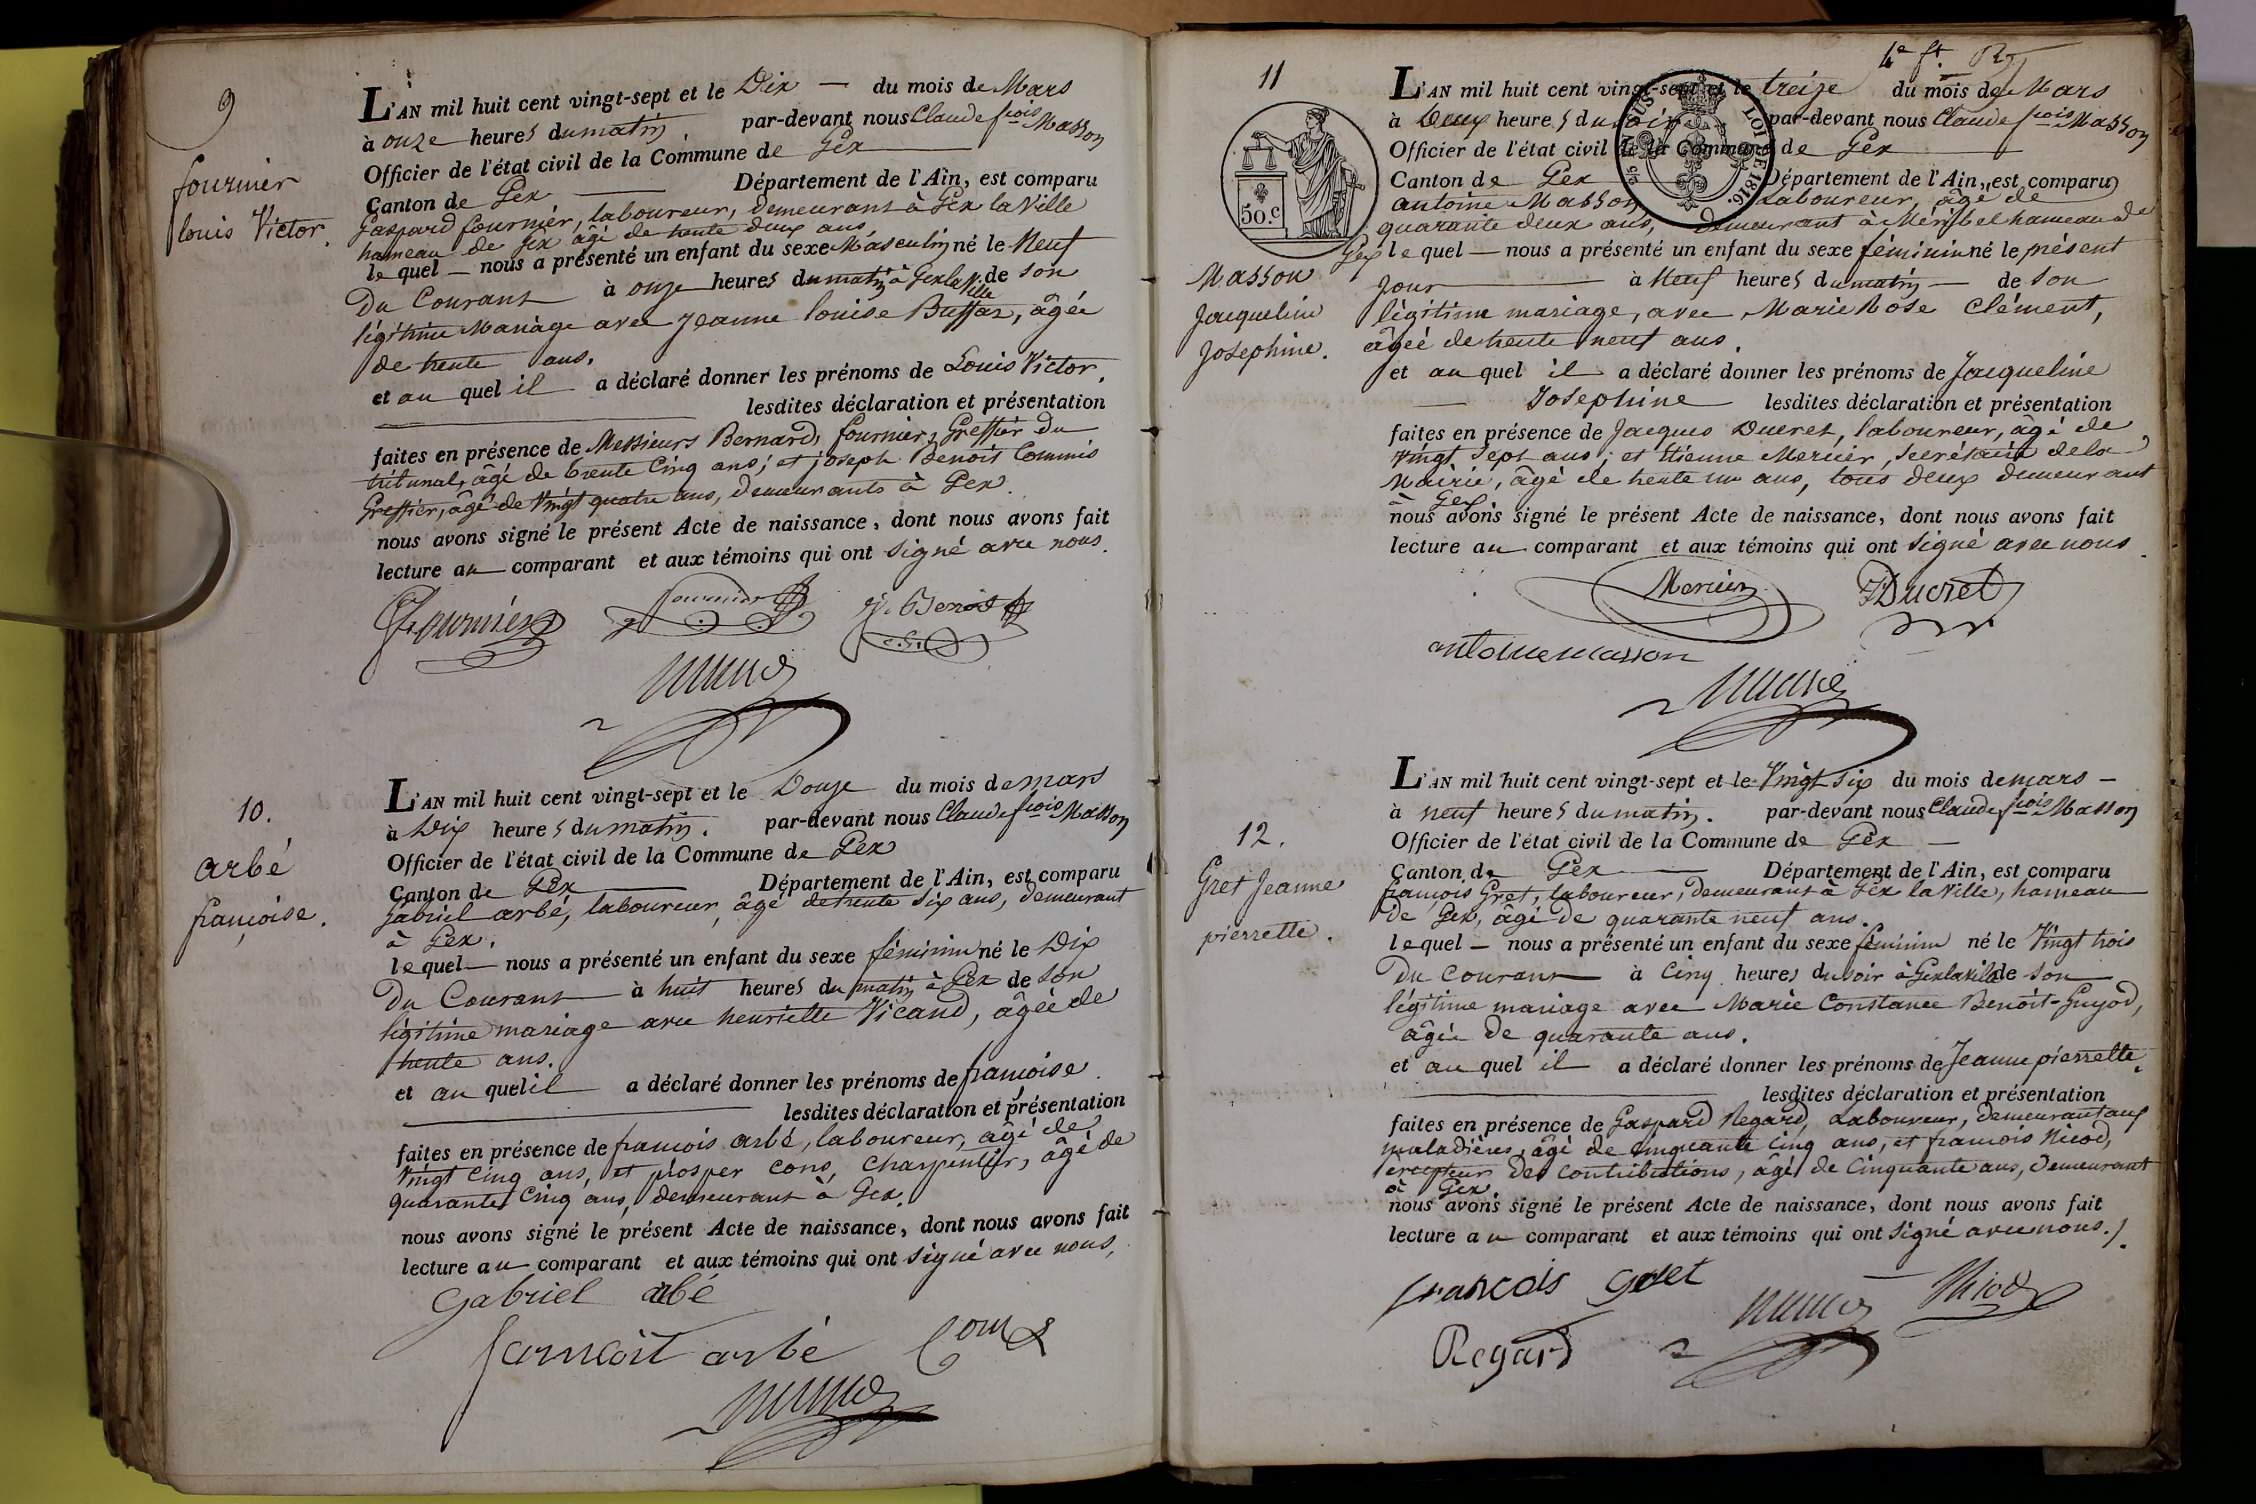 9
fournier
louis Victor.
L'AN mil huit cent vingt-sept et le Dix — du mois de Mars
à onze heures du matin. par-devant nous Claude fcois Masson
Officier de l'état civil de la Commune de Gex
Canton de Gex Département de l'Ain, est comparu
Gaspard fournier, laboureur, demeurant à Gex la Ville
hameau de Gex âgé de trente deux ans
le quel — nous a présenté un enfant du sexe Masculin né le Neuf
Du Courant à onze heures du matin à Gex la Ville de son
légitime Mariage avec Jeanne louise Buffaz, âgée
de trente ans.
et au quel il a déclaré donner les prénoms de Louis Victor.
lesdites déclaration et présentation
faites en présence de Messieurs Bernard fournier, Greffier du
tribunal, âgé de trente Cinq ans; et joseph Benoit Commis
Greffier, âgé de Vingt quatre ans, demeurants à Gex.
nous avons signé le présent Acte de naissance, dont nous avons fait
lecture au comparant et aux témoins qui ont signé avec nous.
Fournier fournier J. Benoit
10.
arbé
françoise.
L'AN mil huit cent vingt-sept et le Douze du mois de mars
à Dix heures du matin. par-devant nous Claude fcois Masson
Officier de l'état civil de la Commune de Gex
Canton de Gex Département de l'Ain, est comparu
Gabriel arbé, laboureur, âgé de trente six ans, demeurant
à Gex.
le quel — nous a présenté un enfant du sexe féminin né le Dix
Du Courant à huit heures du matin à Gex de son
légitime mariage avec henriette Vicand, âgée de
trente ans.
et au quel il a déclaré donner les prénoms de françoise.
lesdites déclaration et présentation
faites en présence de francois arbé, laboureur, âgé de
Vingt Cinq ans, et prosper cons, Charpentier, âgé de
quarante Cinq ans, demeurant à Gex.
nous avons signé le présent Acte de naissance, dont nous avons fait
lecture au comparant et aux témoins qui ont signé avec nous,
Gabriel arbé
arbé Cons
4e ft.
11
50.c
EN SUS LOI DE 1816.
Masson
Jacqueline
Josephine.
L'AN mil huit cent vingt-sept et le treize du mois de Mars
à Deux heures du soir par-devant nous Claude fcois Masson
Officier de l'état civil de la Commune de Gex
Canton de Gex Département de l'Ain, est comparu
antoine Masson Laboureur, âgé de
quarante deux ans, demeurant à Meribel hameau de
Gex le quel — nous a présenté un enfant du sexe féminin né le présent
Jour à Neuf heures du matin — de son
légitime mariage, avec Marie Rose Clément,
âgée de trente neuf ans.
et au quel il a déclaré donner les prénoms de Jacqueline
Josephine lesdites déclaration et présentation
faites en présence de Jacques Ducret, laboureur, âgé de
Vingt Sept ans; et Etienne Mercier, Secrétaire de la
Mairie, âgé de trente un ans, tous deux demeurant
à Gex.
nous avons signé le présent Acte de naissance, dont nous avons fait
lecture au comparant et aux témoins qui ont signé avec nous.
Mercier JDucret
antoine masson
12.
Gret Jeanne
pierrette.
L'AN mil huit cent vingt-sept et le Vingt six du mois de mars —
à neuf heures du matin. par-devant nous Claude fcois Masson
Officier de l'état civil de la Commune de Gex —
Canton de Gex Département de l'Ain, est comparu
françois Gret, laboureur, demeurant à Gex la Ville, hameau
de Gex, âgé de quarante neuf ans.
le quel — nous a présenté un enfant du sexe féminin né le Vingt trois
Du Courant à Cinq heures du soir à Gex la Ville de son
légitime mariage avec Marie Constance Benoit-Guyod,
âgée De quarante ans.
et au quel il a déclaré donner les prénoms de Jeanne pierrette.
lesdites déclaration et présentation
faites en présence de Gaspard Regard, Laboureur, demeurant aux
maladières, âgé de cinquante Cinq ans, et francois Nicod,
percepteur des Contributions, âgé de Cinquante ans, Demeurant
à Gex.
nous avons signé le présent Acte de naissance, dont nous avons fait
lecture au comparant et aux témoins qui ont signé avec nous.
francois gret Nicod
Regard